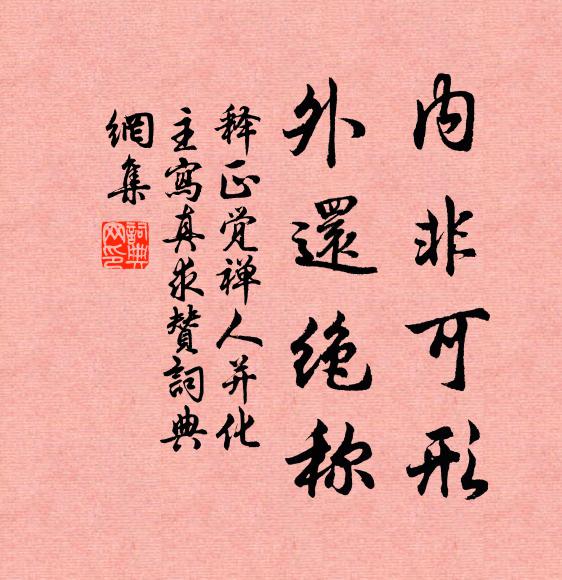 内非可形
外還绝称
释正觉禅人并化
主寫真求贊詞典
網集
詞典
网印